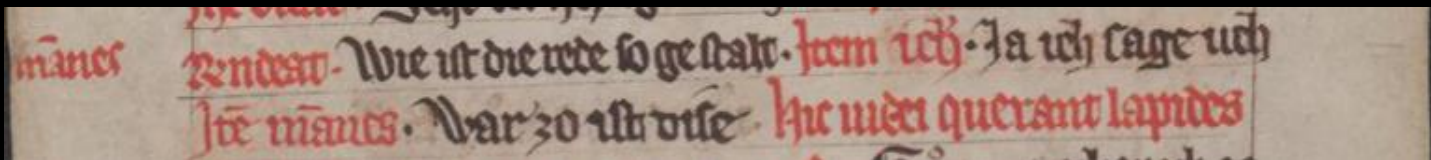 mānes Rendeat. Wie ist die rede so gestalt. Item ich. Ja ich sage uch
Itē mānes. War zo ist dise Hic iudei querant lapides